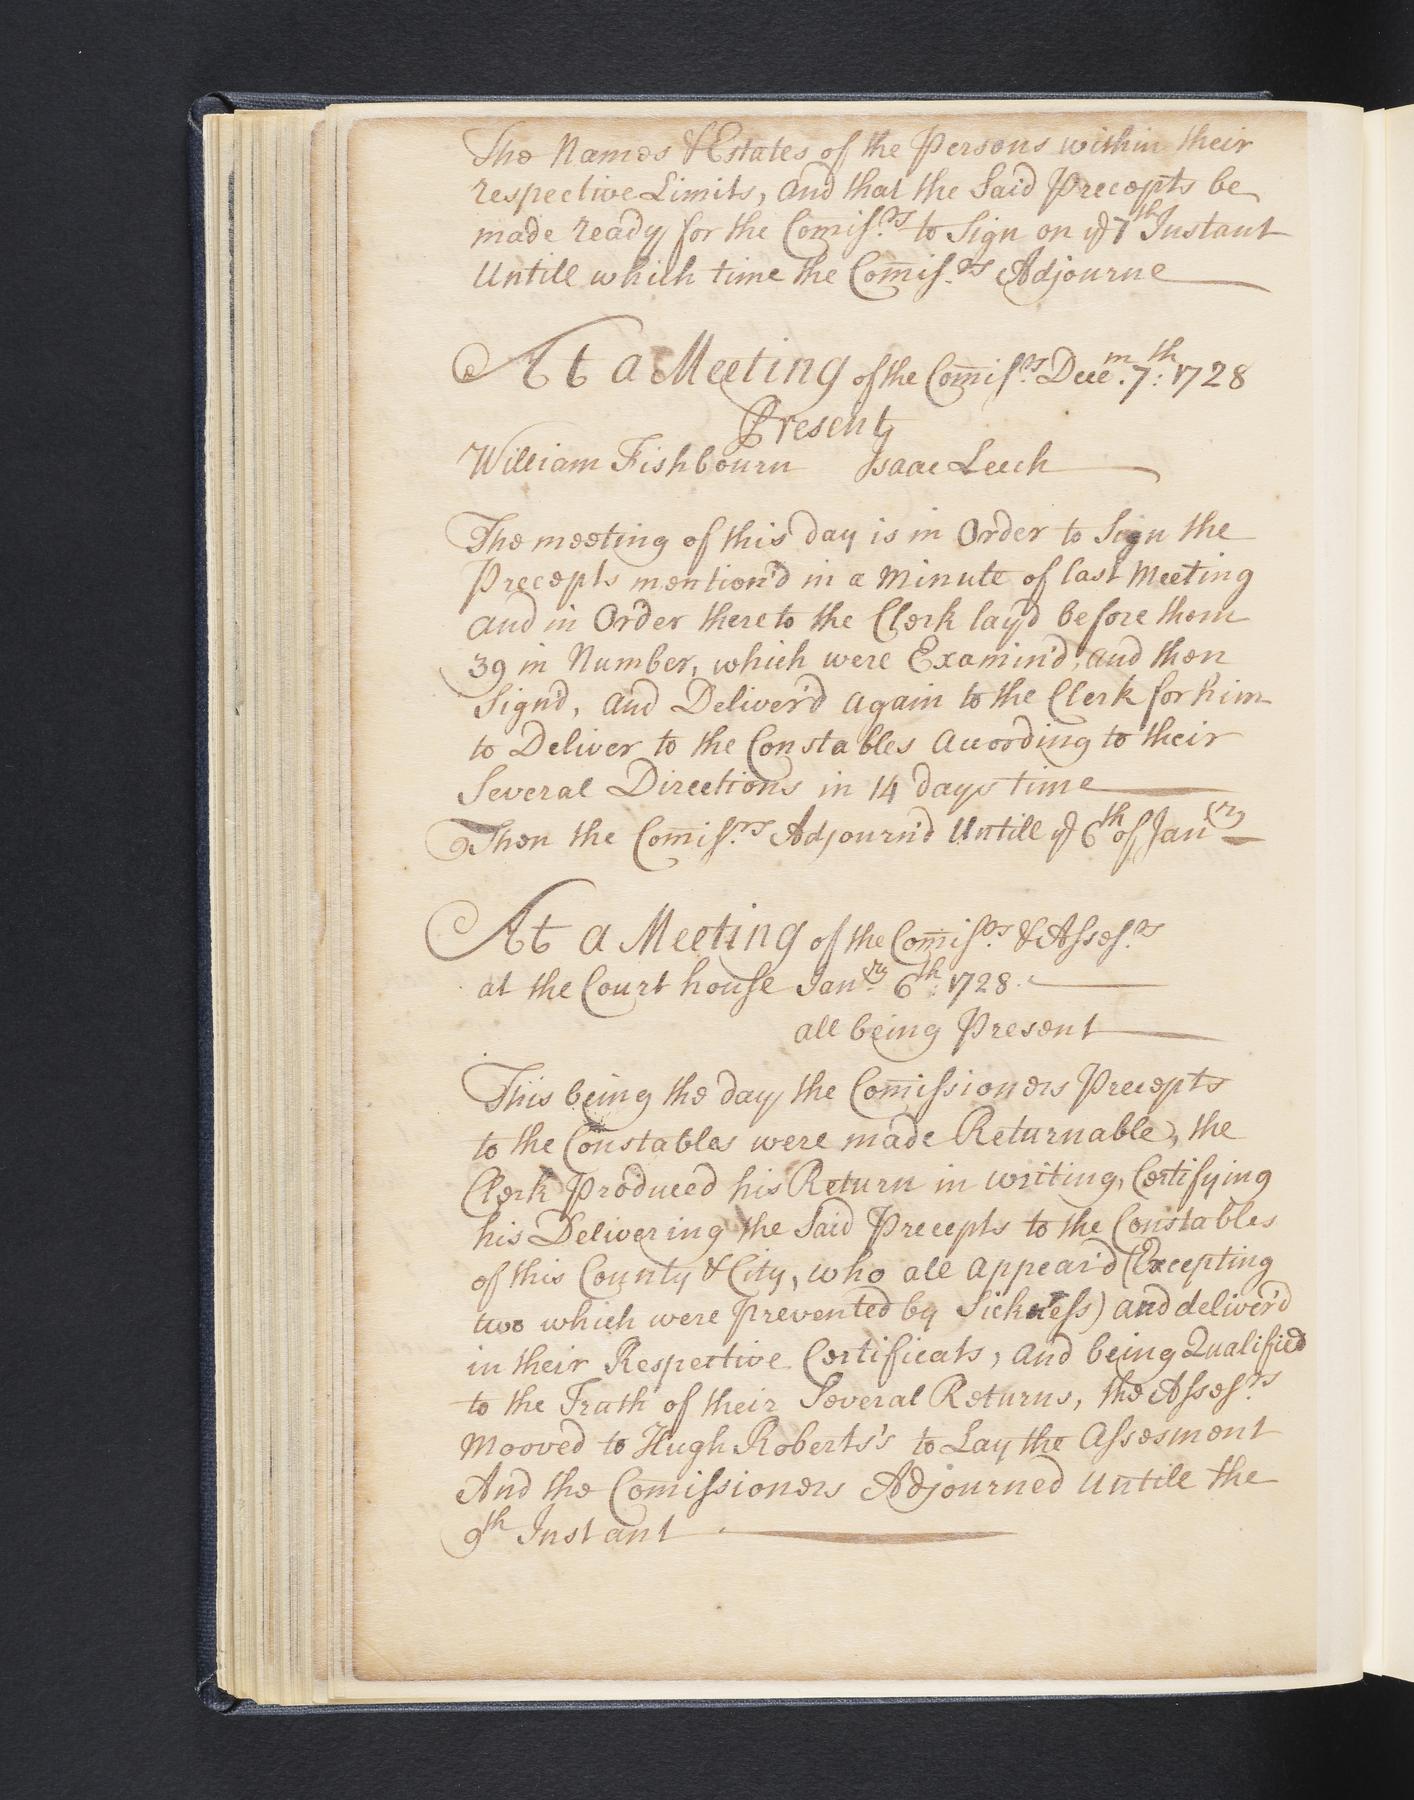 The Names & Estates of the Persons within their
respective Limits, and that the Said Precepts be
made ready for the Comiss.rs to Sign on ye 7th Instant
Untill which time the Comiss.rs Adjourne
At a Meeting of the Comiss.rs Decem. 7th: 1728
Present
William Fishbourn Isaac Leech
The meeting of this day is in Order to Sign the
Precepts mention'd in a Minute of last Meeting
and in Order thereto the Clerk lay'd before them
39 in Number, which were Examin'd, and then
Sign'd, and Deliver'd again to the Clerk for him
to Deliver to the Constables according to their
Several Directions in 14 days time
Then the Comiss.rs Adjourn'd Untill ye 6th of Janry
At a Meeting of the Comiss.rs & Asses.rs
at the Court house Janry 6th: 1728.
all being Present
This being the day the Comissioners Precepts
to the Constables were made Returnable, the
Clerk Produced his Return in writing, Certifying
his Delivering the Said Precepts to the Constables
of this County & City, who all appear'd (Excepting
two which were prevented by Sickness) and deliver'd
in their Respective Certificats, and being Qualified
to the Truth of their Several Returns, the Asses.rs
Mooved to Hugh Roberts's to Lay the Assesment
And the Comissioners Adjourned Untill the
9th Instant